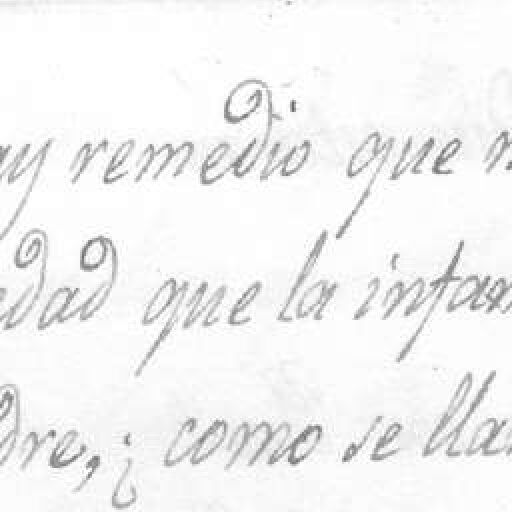 ay remedio que n
edad que la infam
dre, ¿como se llam